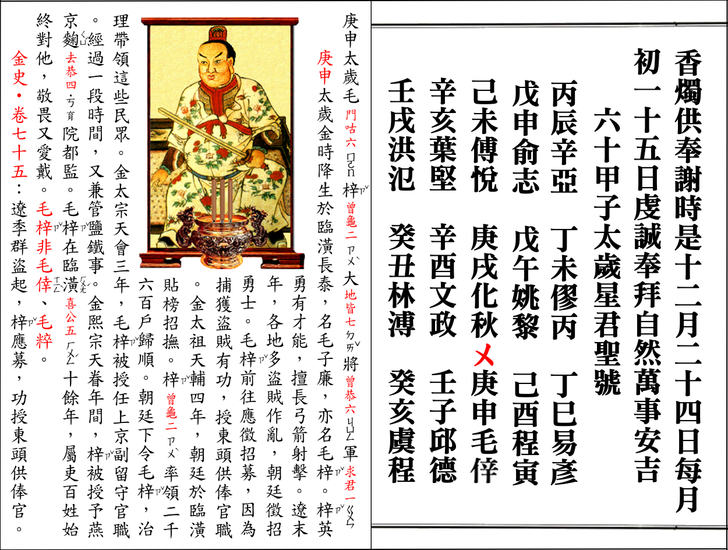 香燭供奉謝時是十二月二十四日每月
初一十五日虔誠奉拜自然萬事安吉
六十甲子太歲星君聖號
丙辰辛亞　丁未僇丙　丁巳易彥
戊申俞志　戊午姚黎　己酉程寅
己未傅悅　庚戌化秋㐅庚申毛倅
辛亥葉堅　辛酉文政　壬子邱德
壬戌洪氾　癸丑林溥　癸亥虞程
庚申太歲毛門咕六梓曾龜二ㄗㄨ大地皆七將曾恭六軍求君一
庚申太歲金時降生於臨潢長泰，名毛子廉，亦名毛梓。梓英
勇有才能，擅長弓箭射擊。遼末
年，各地多盜賊作亂，朝廷徵招
勇士。毛梓前往應徵招募，因為
捕獲盜賊有功，授東頭供俸官職
。金太祖天輔四年，朝廷於臨潢
貼榜招撫。梓曾龜二ㄗㄨ率領二千
六百戶歸順。朝廷下令毛梓，治
理帶領這些民眾。金太宗天會三年，毛梓被授任上京副留守官職
。經過一段時間，又兼管鹽鐵事。金熙宗天眷年間，梓被授予燕
京麴去恭四ㄎㄧㄠ院都監。毛梓在臨潢喜公五十餘年，屬吏百姓始
終對他，敬畏又愛戴。毛梓非毛倖、毛粹。
金史・卷七十五：遼季群盜起，梓應募，功授東頭供俸官。